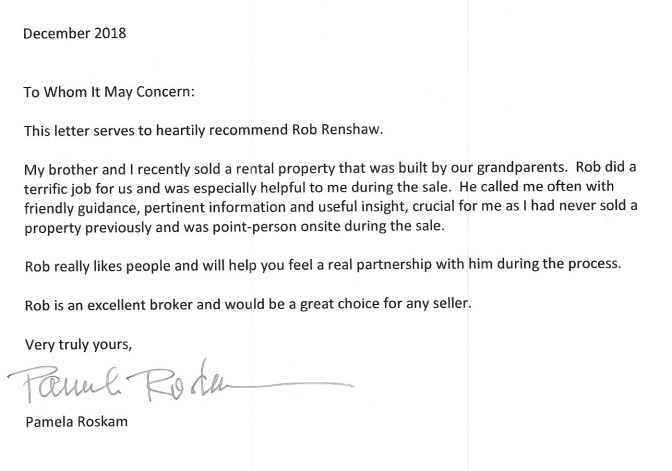 December 2018
To Whom It May Concern:
This letter serves to heartily recommend Rob Renshaw.
My brother and I recently sold a rental property that was built by our grandparents.  Rob did a
terrific job for us and was especially helpful to me during the sale.  He called me often with
friendly guidance, pertinent information and useful insight, crucial for me as I had never sold a
property previously and was point-person onsite during the sale.
Rob really likes people and will help you feel a real partnership with him during the process.
Rob is an excellent broker and would be a great choice for any seller.
Very truly yours,
Pamela Roskam
Pamela Roskam